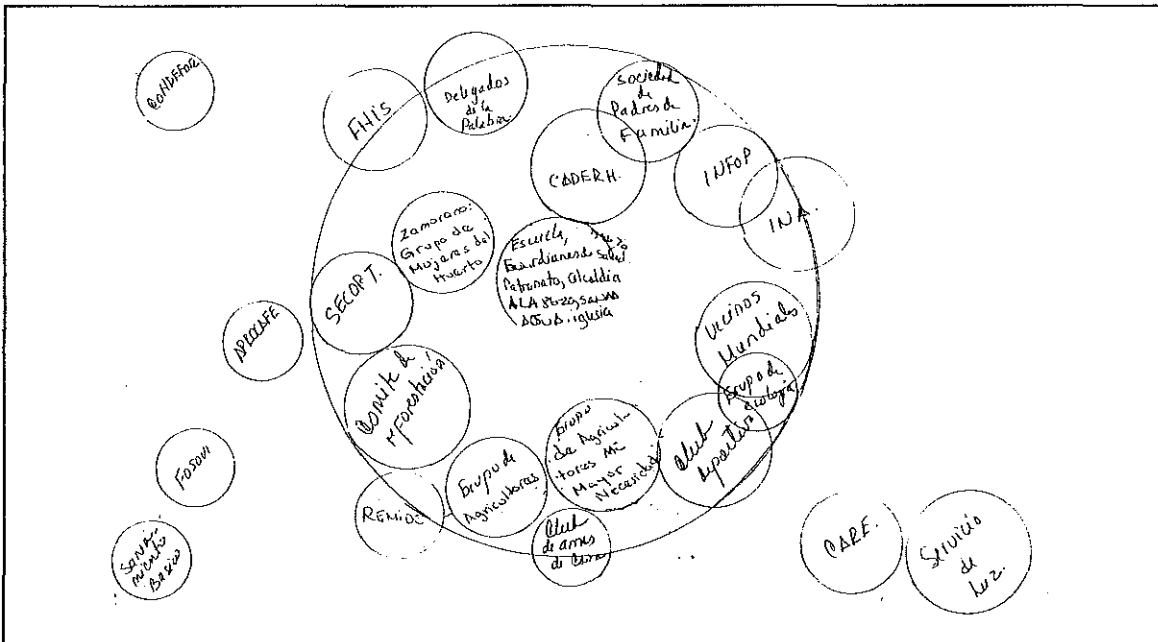 CONDEFOR
FHIS
Delegados
de la
Palabra.
Sociedad
de
Padres de
Familia.
CADERH.
INFOP
INA.
Zamorano:
Grupo de
Mujeres del
Huerto
Escuela,
Guardianes de Salud
Patronato, Alcaldia
AGUA. iglesia
SECOPT.
APROCAFE
Vecinos
Mundiales
Grupo de
ecologia
Club
deportivo
Comite de
reforestación
Grupo
de Agricul
tores
Mayor
Necesidad
Grupo de
Agricultores
REMIDE
Club
de amas
de Casa
FOSOVI
SANEA-
miento
Basico
CARE.
Servicio
de
Luz.